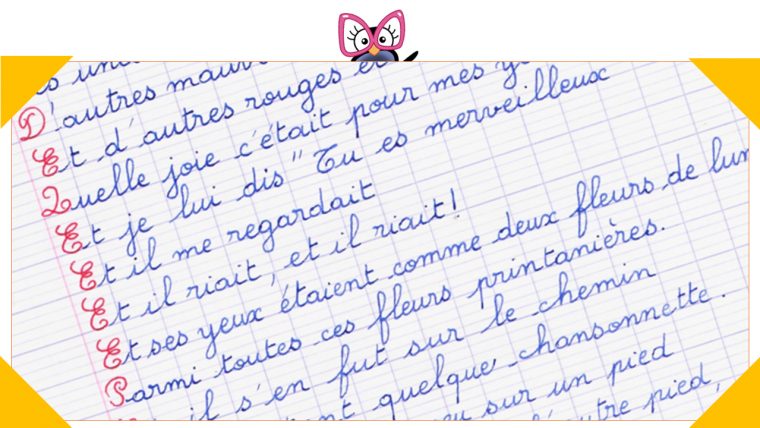 s une
D'autres mauv
Et d'autres rouges et
Quelle joie c'était pour mes y
Et je lui dis " Tu es merveilleux
Et il me regardait
Et il riait, et il riait!
Et ses yeux étaient comme deux fleurs de lum
Parmi toutes ces fleurs printanières.
il s'en fut sur le chemin
nt quelque chansonnette.
u sur un pied
l'autre pied,